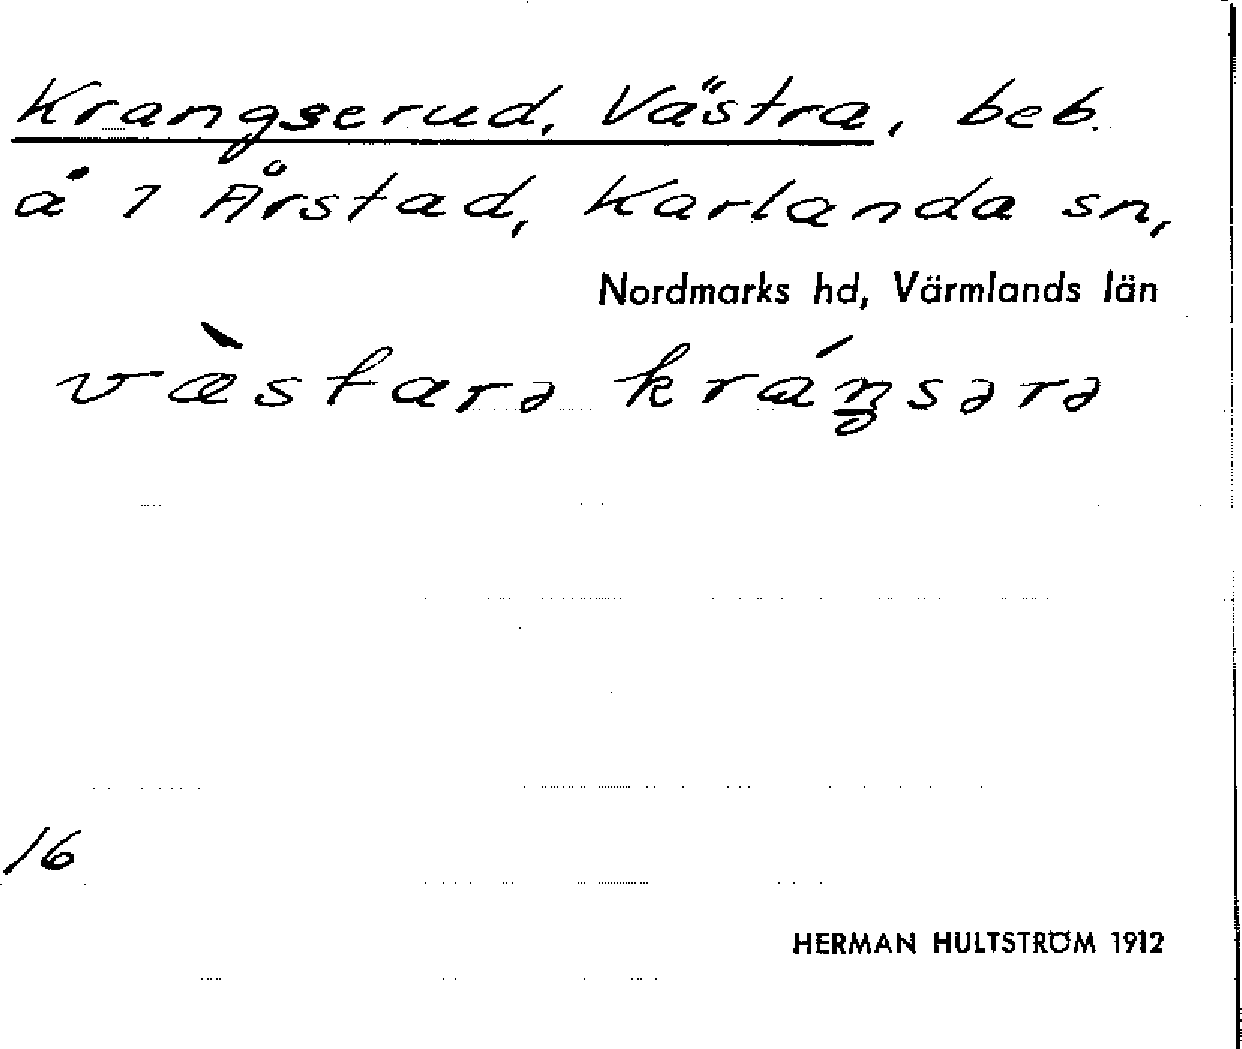 Krangserud, Västra, beb.
å 1 Årstad, Karlanda sn,
Nordmarks hd, Värmlands län
væ̀starə kráŋsərə
16
HERMAN HULTSTRÖM 1912